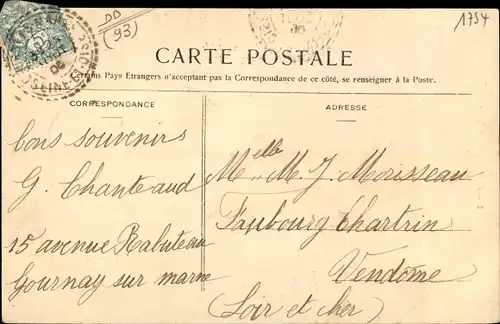 DD
(93)
1754
CARTE POSTALE
Certains Pays Etrangers n'acceptant pas la Correspondance de ce côté, se renseigner à la Poste.
CORRESPONDANCE
Bons souvenirs
G. Chanteaud
15 avenue Rabuteau
Gournay sur marne
ADRESSE
Melle M J. Morisseau
Faubourg Chartrin
Vendôme
(Loir et cher)